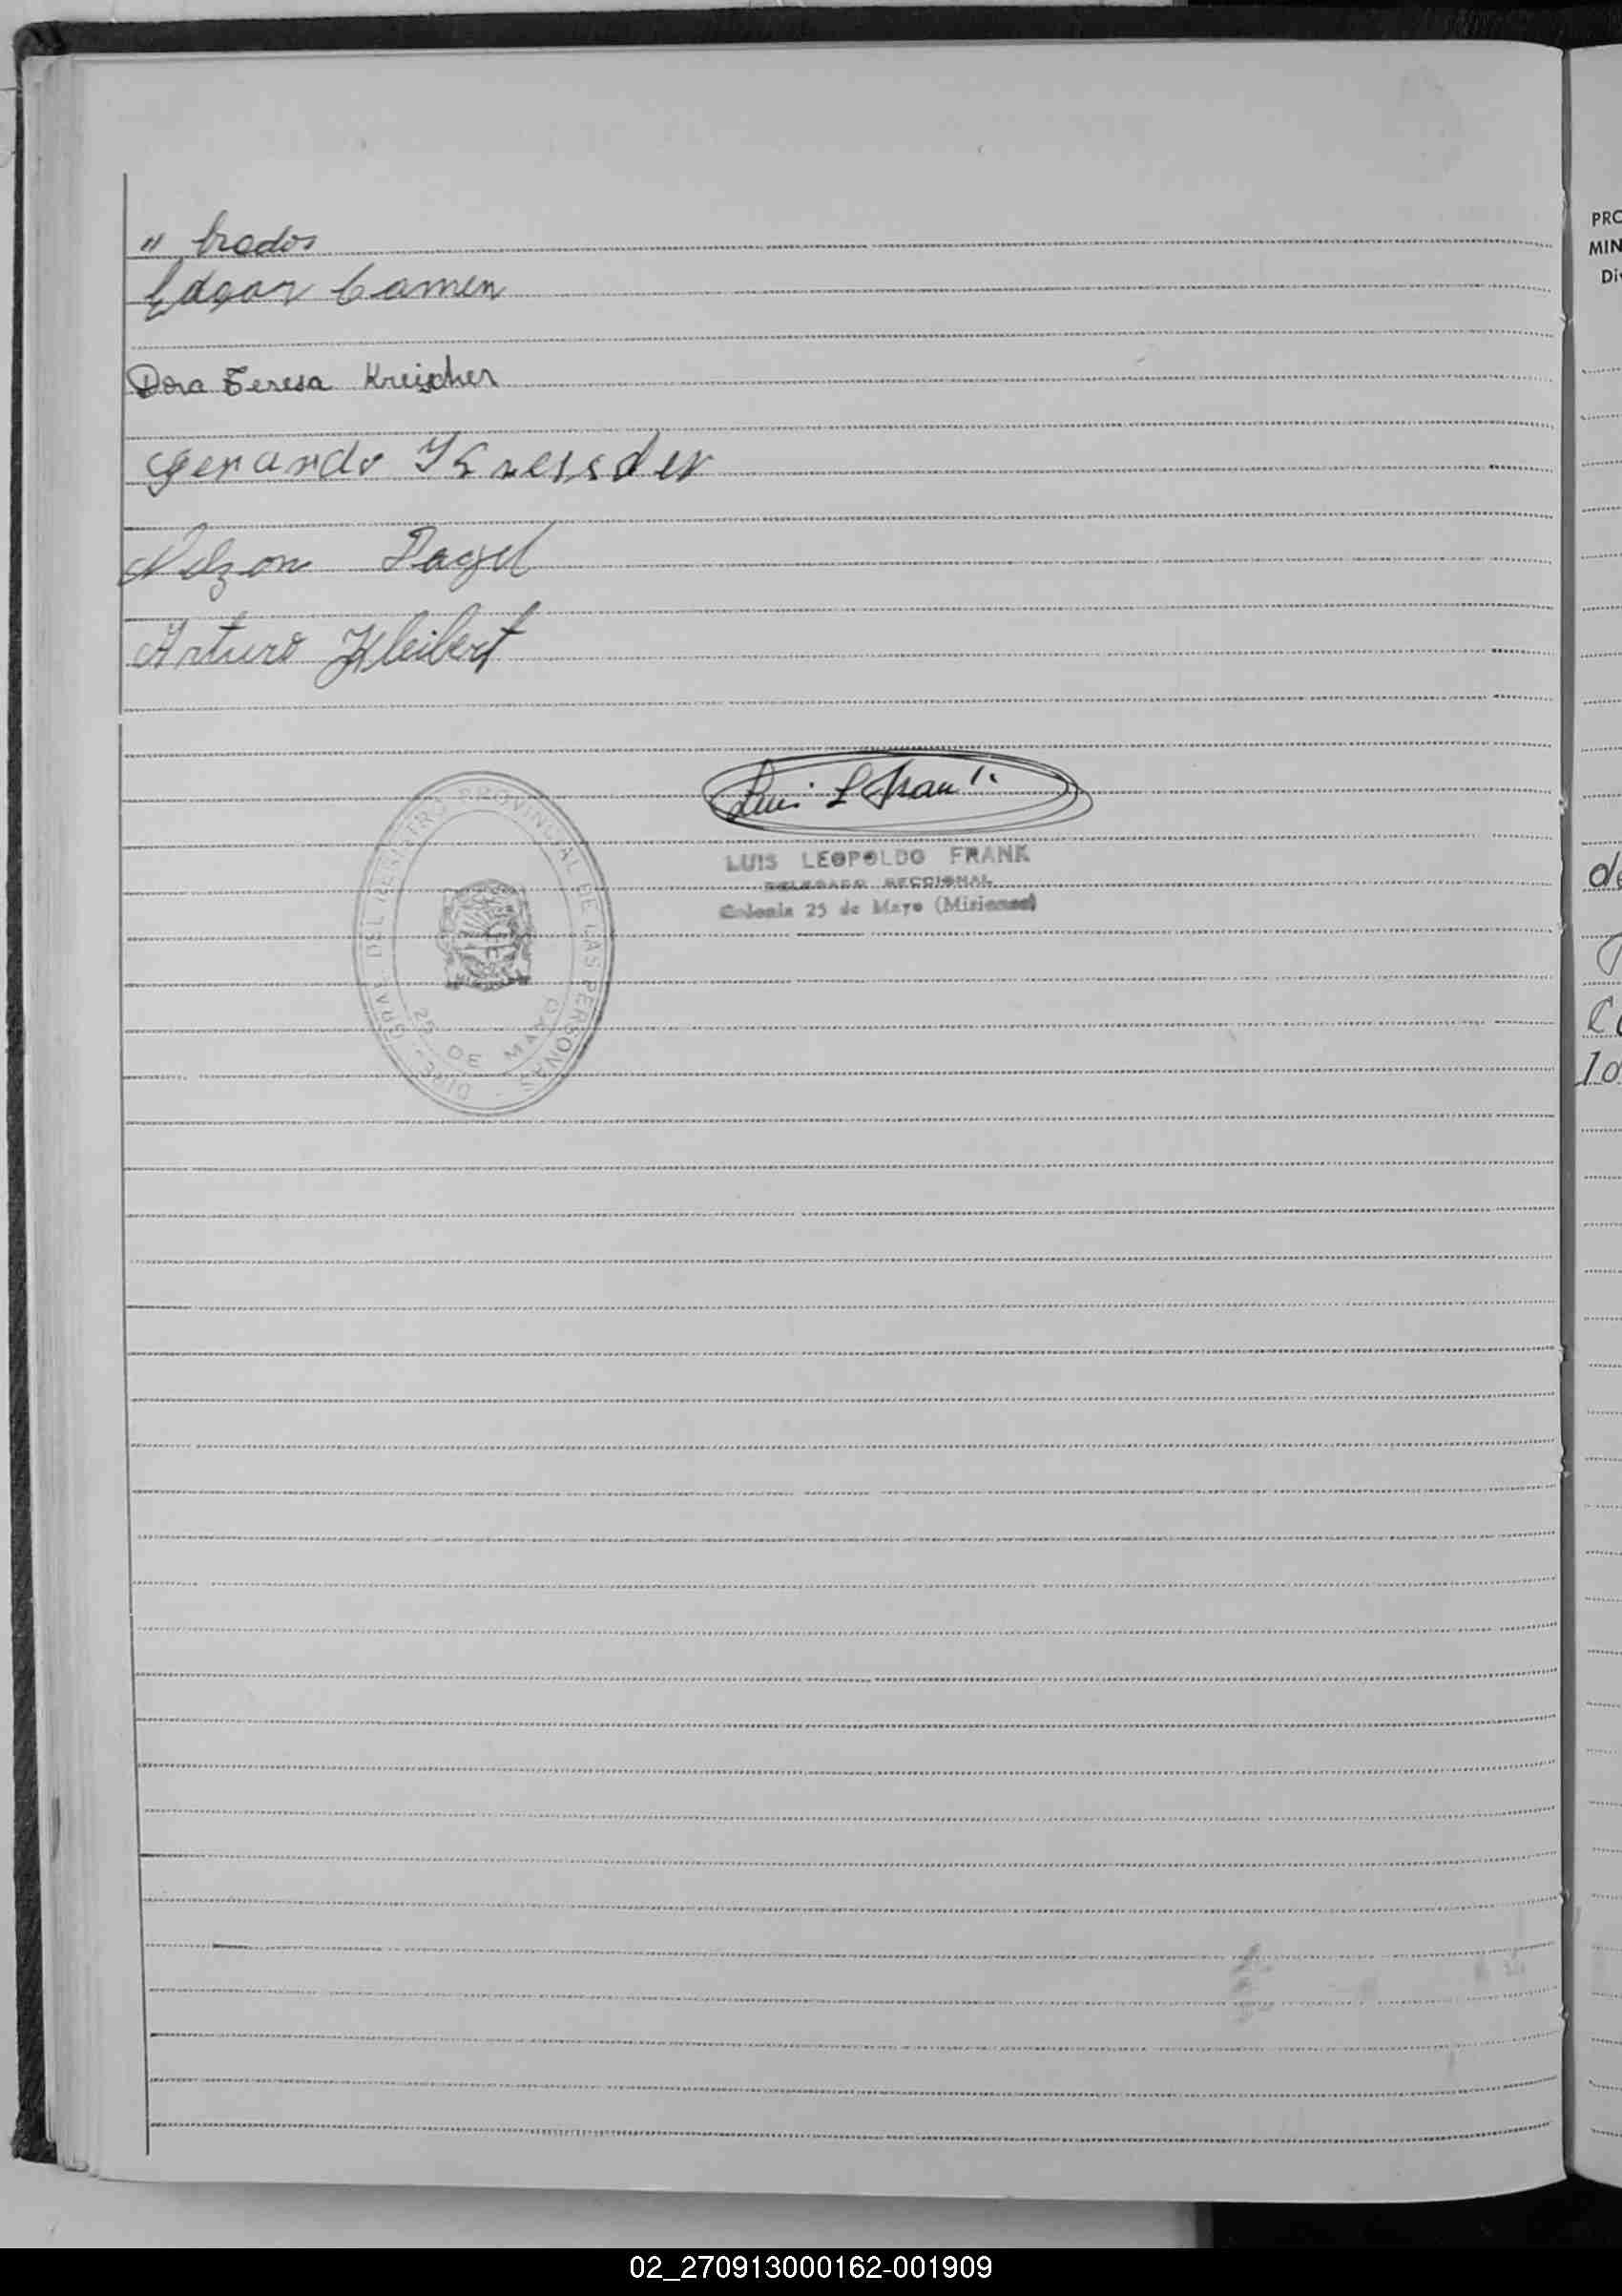 " brados
Edgar Camen
Dora Teresa Kreischer
Gerardo
Nelzon Pagel
Arturo Kleibert
Luis L Frank
LUIS LEOPOLDO FRANK
DELEGADO SECCIONAL
Colonia 25 de Mayo (Misiones)
DEL REGISTRO PROVINCIAL DE LAS PERSONAS
25 DE MAYO
PRO
MIN
Di
de
10
02_270913000162-001909